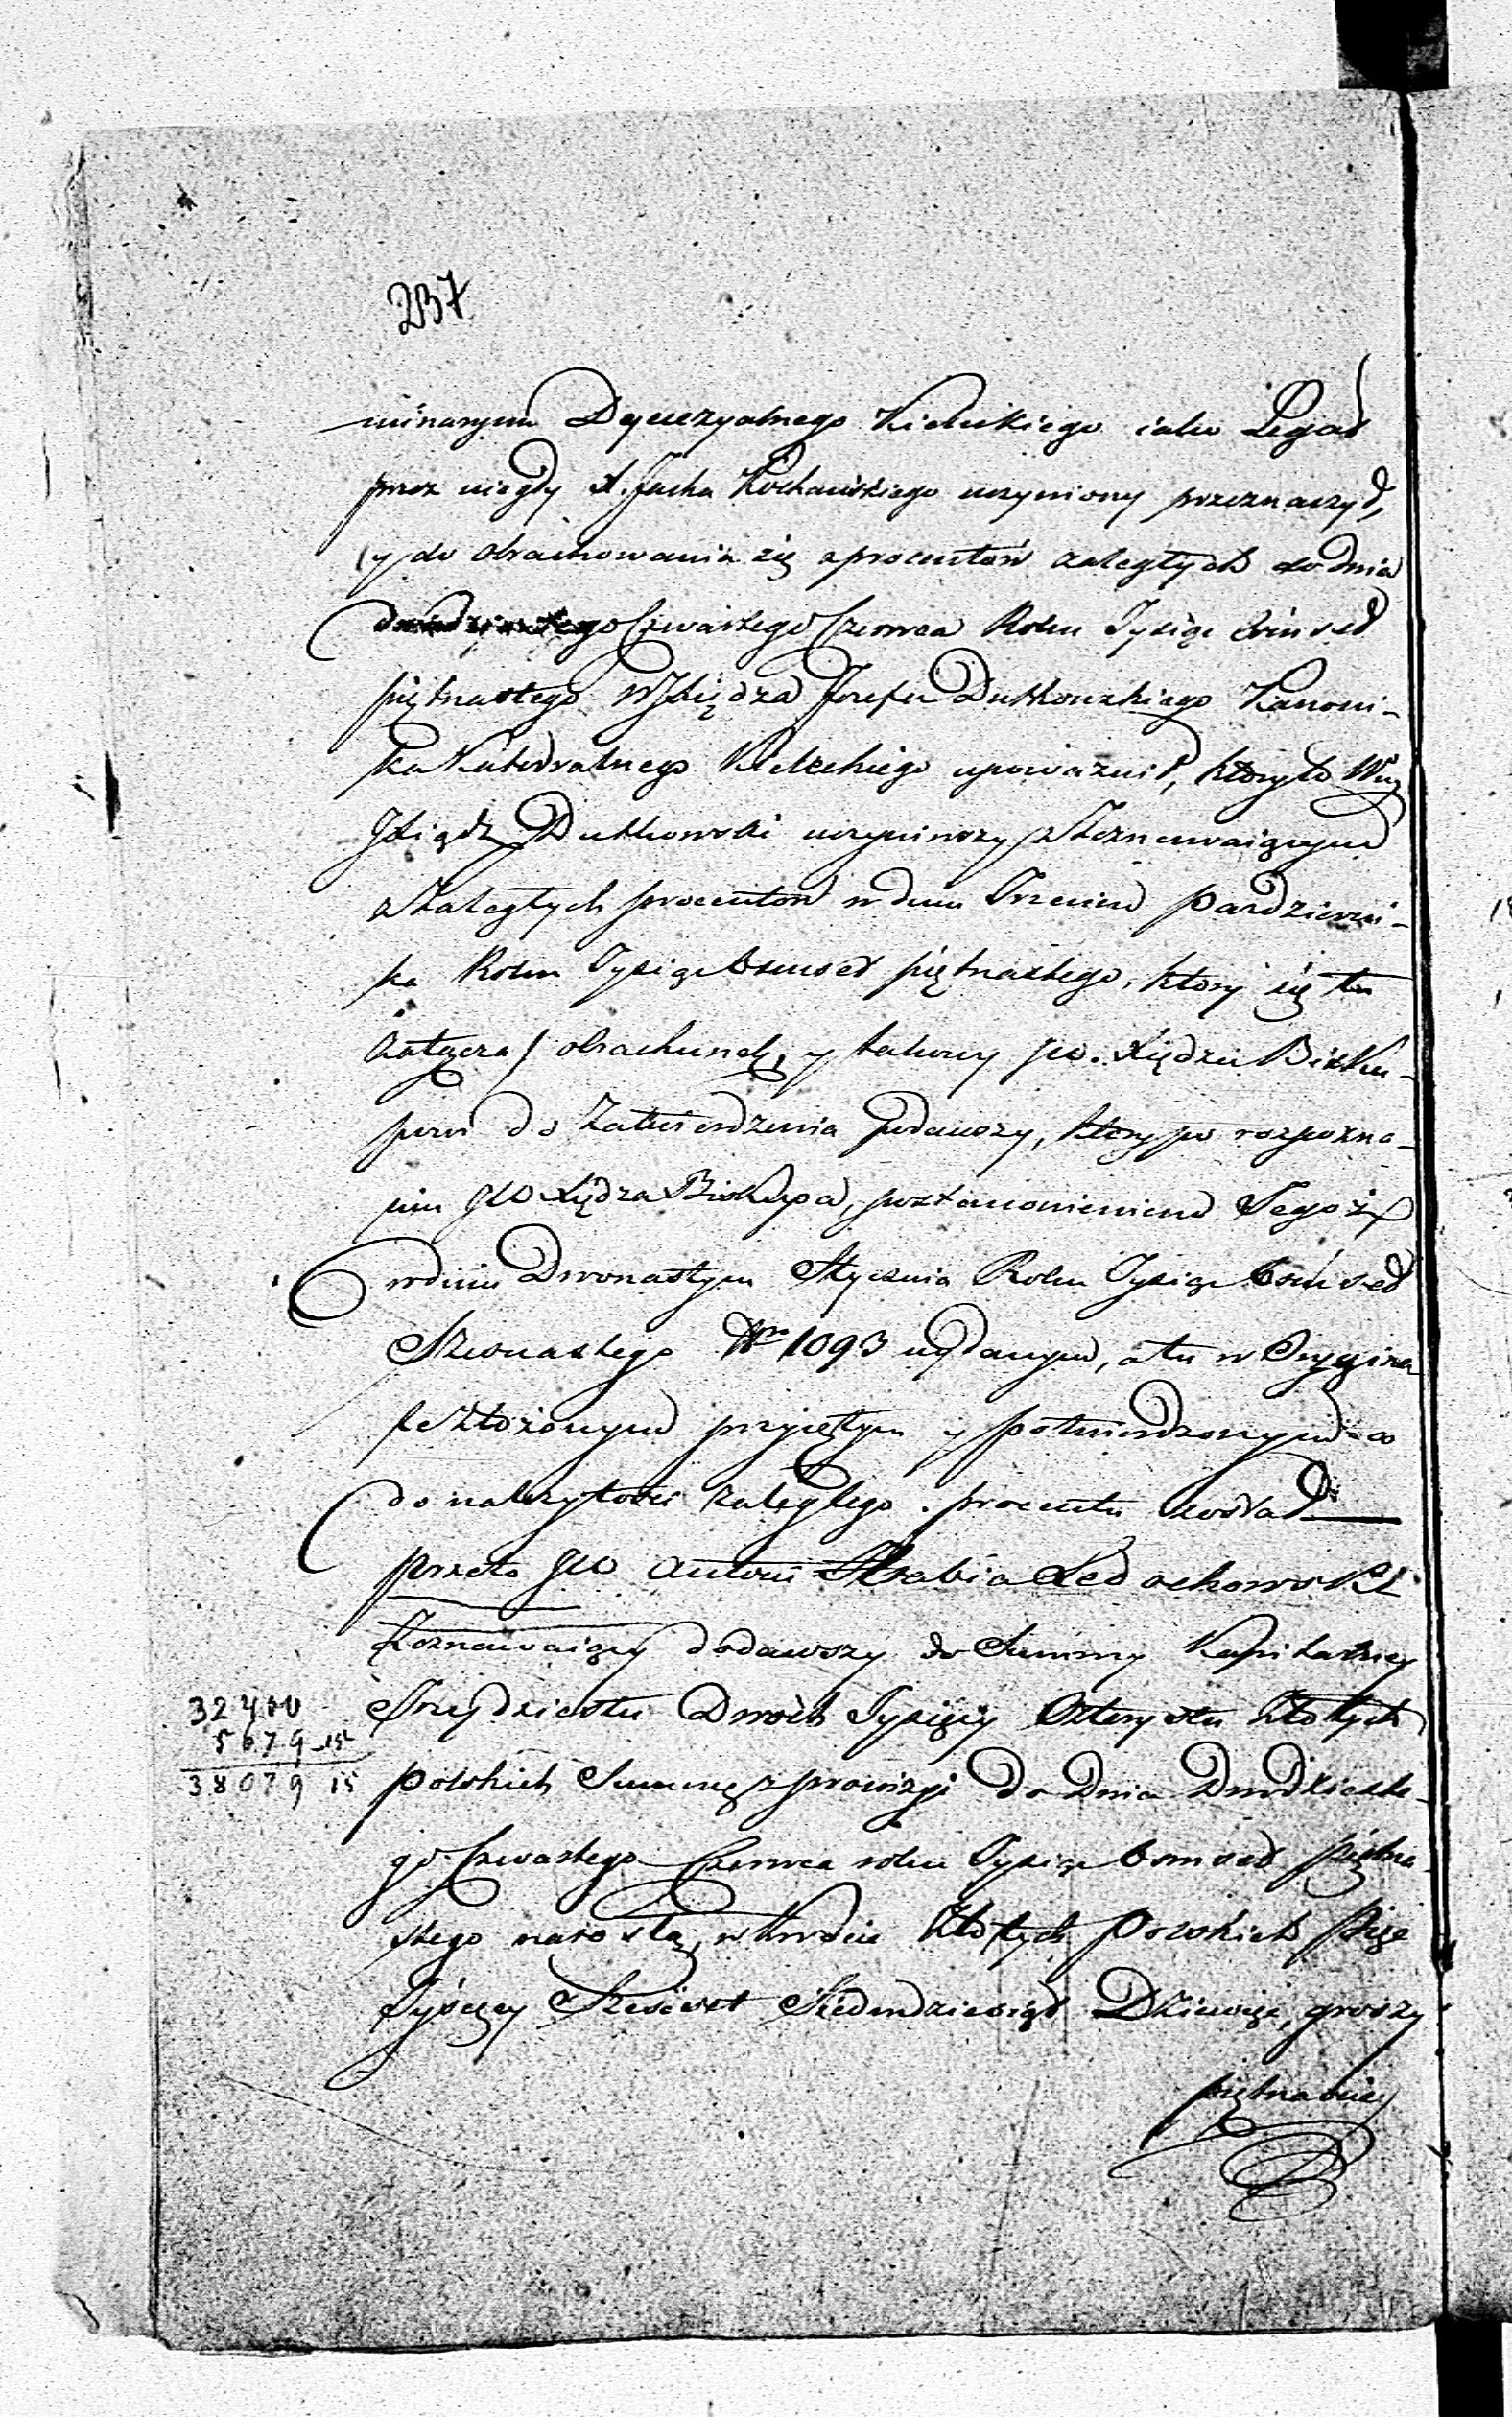 237
minaryum Dyecezyalnego Kieleckiego iako Legat
przez niegdy X. Jacka Kochańskiego uczyniony przeznaczył,
y do obrachowania się z procentów zaległych do dnia
dwudziestego Czwartego Czerwca Roku Tysiąc Ośmset
piętnastego WJXiędza Jozefa Dutkowskiego Kanoni-
ka Katedralnego Kieleckiego upoważnił, który to Wny
JXiądz Dutkowski uczyniwszy z Zeznawaiącym
z Zaległych procentów w dniu Trzecim Pazdzierni-
ka Roku Tysiąc Osmset piętnastego, ktory się tu
załącza / obrachunek, y takowy JW. Xiędzu Bisku-
powi do Zatwierdzenia podawszy, ktory po rozpozna-
niu JW Xiędza Biskupa, postanowieniem Tegoż
w dniu Dwunastym Stycznia Roku Tysiąc Ośmset
Szesnastego Nro 1093 wydanym, a tu w Oryginal
le złożonym przyiętym y potwierdzonym co
do należytości zaległego procentu został
przeto JW Antoni Hrabia Ledochowski
Zeznawaiący dodawszy do Summy Kapitalney
Trzydziestu Dwóch Tysięcy Czterystu Złotych
32400
5679 15
38079 15
polskich Summę z prowizyi do Dnia Dwudzieste-
go Czwartego Czerwca roku Tysiąc Osmset piętna-
stego narosłą, w kwocie Złotych Polskich Pięć
Tysięcy Sześćset Siedmdziesiąt Dziewięć, groszy
piętnaście